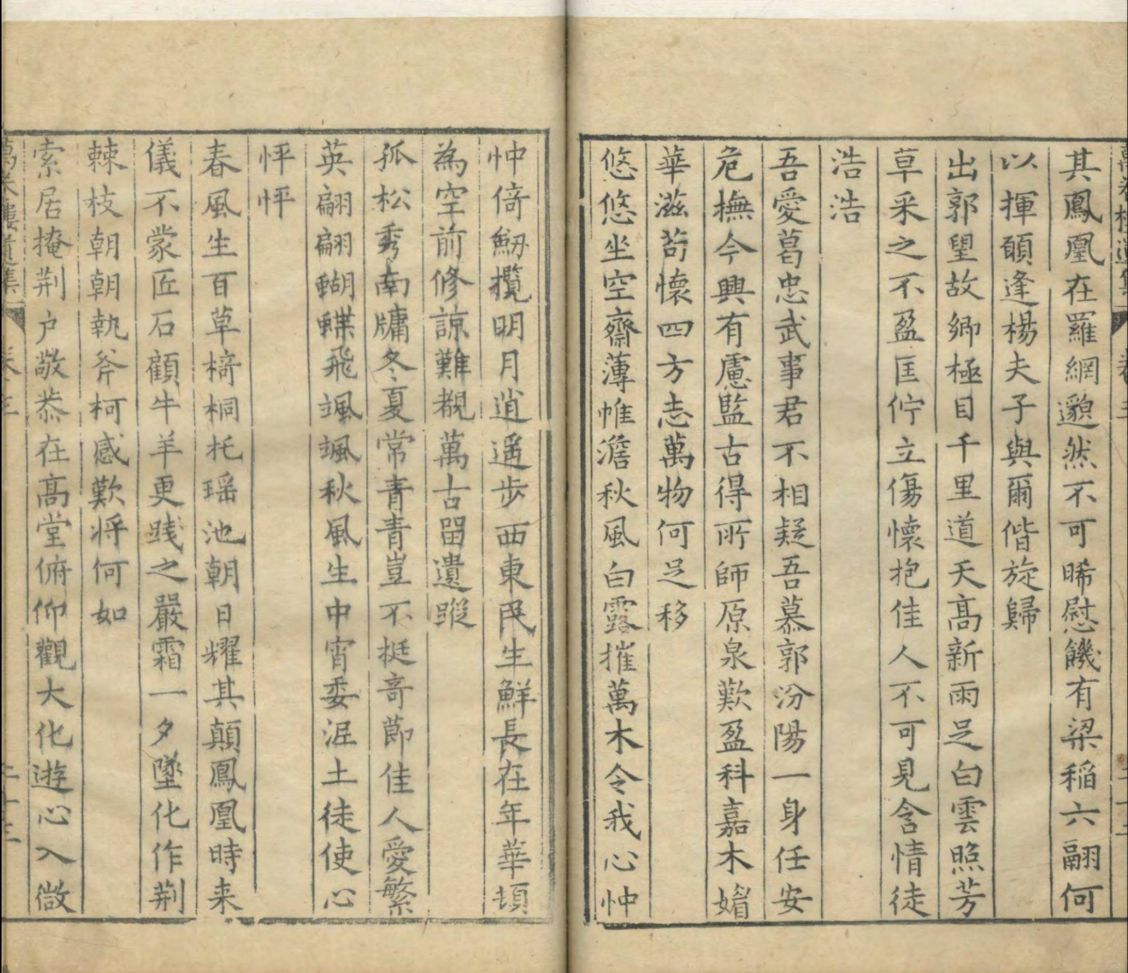 其鳳凰在羅網邈然不可晞慰饑有梁稲六翮何
以揮頥逢楊夫子與爾偕旋歸
出郭望故郷極目千里道天髙新雨足白雲照芳
草采之不盈匡佇立傷懷抱佳人不可見含情徒
浩浩
吾愛葛忠武事君不相疑吾慕郭汾陽一身任安
危撫今興有慮監古得所師原泉歎盈科嘉木媚
華滋苟懷四方志萬物何足移
悠悠坐空齋薄帷澹秋風白露摧萬木令我心忡
忡倚劒攬明月逍遥步西東民生鮮長在年華頃
為空前修諒難覩萬古留遺蹤
孤松秀南牗冬夏常青青豈不挺竒節佳人愛繁
英翩翩蝴蝶飛颯颯秋風生中宵委泥土徒使心
怦怦
春風生百草椅桐托瑶池朝日耀其顛鳳凰時来
儀不蒙匠石顧牛羊更踐之嚴霜一夕墜化作荆
棘枝朝朝執斧柯感歎将何如
索居掩荆户敬恭在髙堂俯仰觀大化遊心入微